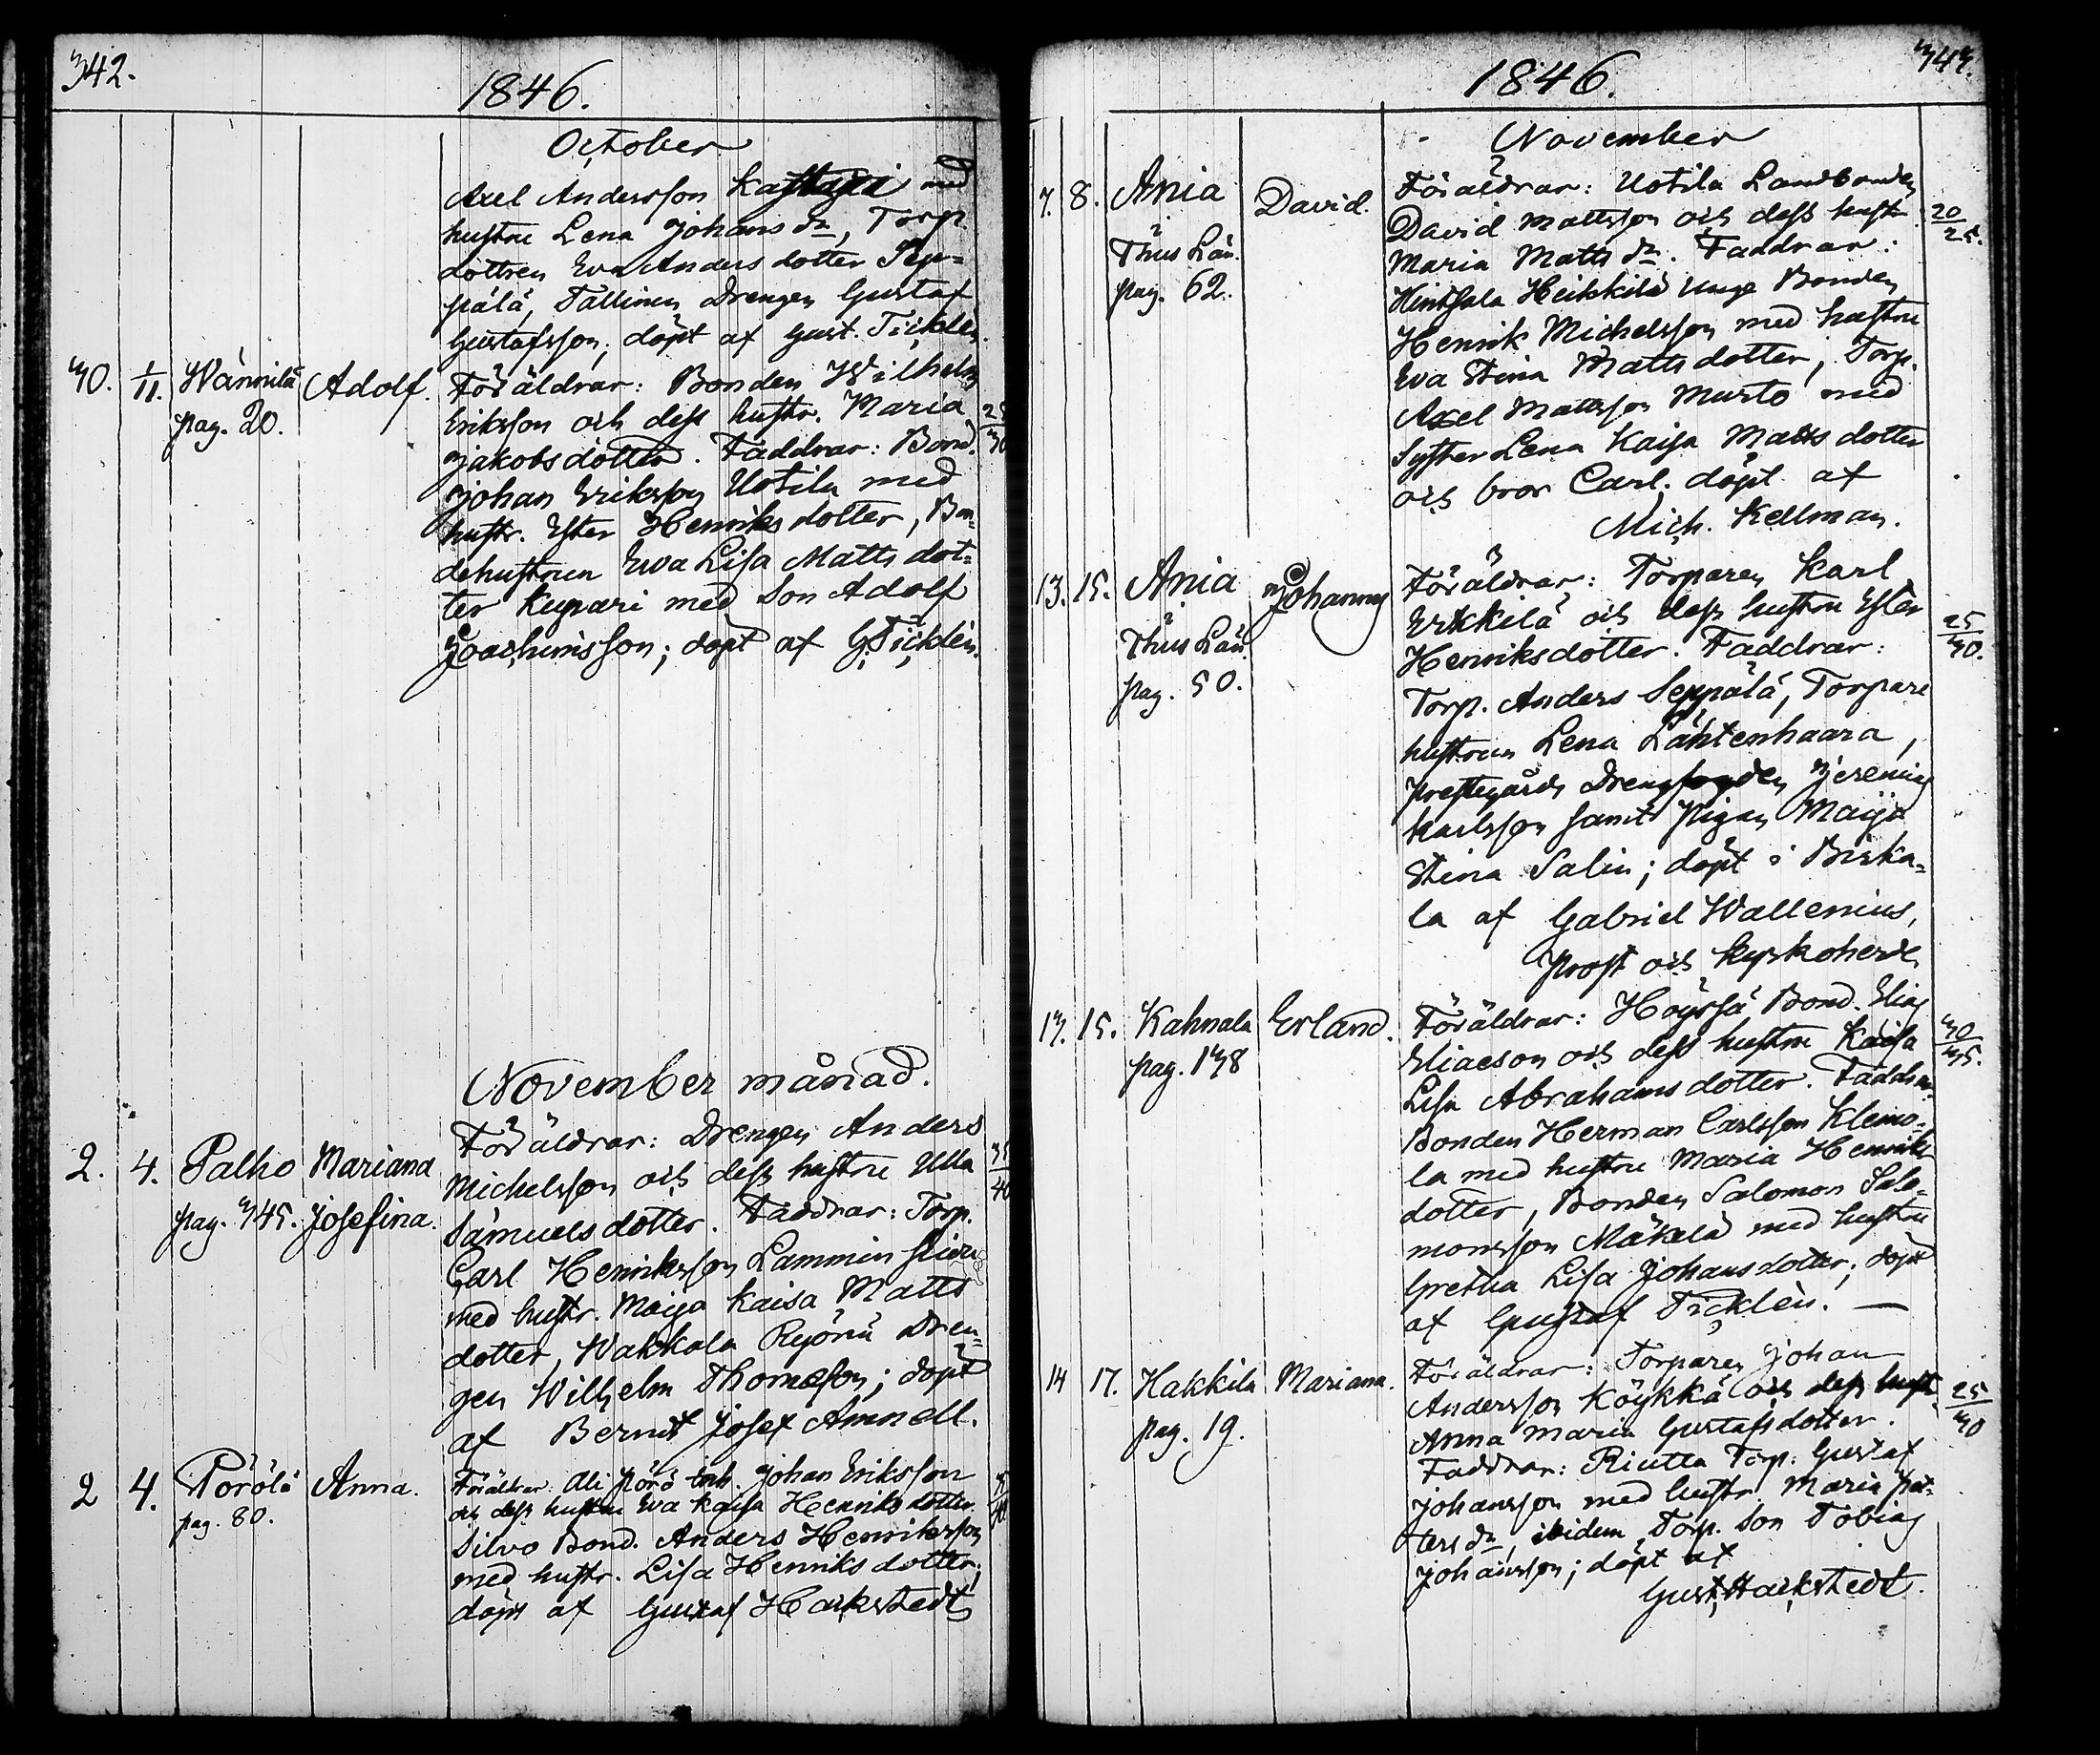 342.
1846.
October
Axel Andersson med
hustru Lena Johans dr, Torp.
dottren Eva Anders dotter Sep-
pälä, Tallinen Drengen Gustaf
Gustafsson; döpt af Gust. Ticklén.
30. 1/11. Wännilä Adolf. Föräldrar: Bonden Wilhelm
pag. 20. Eriksson och dess hustr. Maria
Jakobsdotter. Faddrar: Bond.
Johan Eriksson Uotila med
hustr. Ester Henriks dotter, Bon-
dehustrun Ewa Lisa Matts dot-
ter Kupari med Son Adolf
Joachimsson; döpt af G. Ticklén.
November månad.
2. 4. Palho Mariana Föräldrar: Drengen Anders
pag. 345. Josefina. Michelsson och dess hustru Ulla 35/40
Samuelsdotter. Faddrar: Torp.
Carl Henriksson Lammin
med hustr. Maija Kaisa Matts
dotter, Wakkala Ryönä Dren-
gen Wilhelm Thomasson; döpt
af Bernt Josef Amnell.
2 4. Pörölä Anna. Föräldrar: Ali Pörö Inh. Johan Eriksson
pag. 80. och dess hustru Eva Kaisa Henriks dotter.
Silvo Bond. Anders Henriksson
med hustr. Lisa Henriks dotter;
döpt af Gustaf Hackstedt
343.
1846.
November
7. 8. Ania David. Föräldrar: Uotila Landbonden
Thus Län. David Mattsson och dess hustru 20/25.
pag. 62. Maria Matts dr. Faddrar:
Hintsala Heikkilä Unge Bonden
Henrik Michelsson med hustru
Eva Stina Matts dotter, Torp.
Axel Mattsson Murto med
Syster Lena Kaisa Matts dotter
och bror Carl; döpt af
Mich. Kellman.
13. 15. Ania Johannes Föräldrar: Torparen Karl
Thus Län. Erkkilä och dess hustru Ester 25/30.
pag. 50. Henriksdotter. Faddrar:
Torp. Anders Seppälä, Torpare
hustrun Lena Läntenhaara,
Prestegårds Drengfogden Jeremias
Karlsson samt Pigan Maija
Stina Salin; döpt i Birka-
la af Gabriel Wallenius,
Prost och Kyrkoherde
13. 15. Kahnala Erland. Föräldrar: Höyssä Bond. Elias
pag. 138 Eliaeson och dess hustru Kaisa 30/35.
Lisa Abrahams dotter. Faddrar:
Bonden Herman Carlsson Klemo-
la med hustru Maria Henriks
dotter, Bonden Salomon Salo-
monsson Mäkelä med hustru
Gretha Lisa Johans dotter; döpt
af Gustaf Ticklén.
14 17. Hakkila Mariana. Föräldrar: Torparen Johan
pag. 19. Andersson Köykkä och dess hustr. 25/30
Anna Maria Gustafs dotter.
Faddrar: Riutta Torp. Gustaf
Johansson med hustr. Maria Pet-
ters dr, ibidem Torp. Son Tobias
Johansson; döpt af
Gust. Hackstedt.